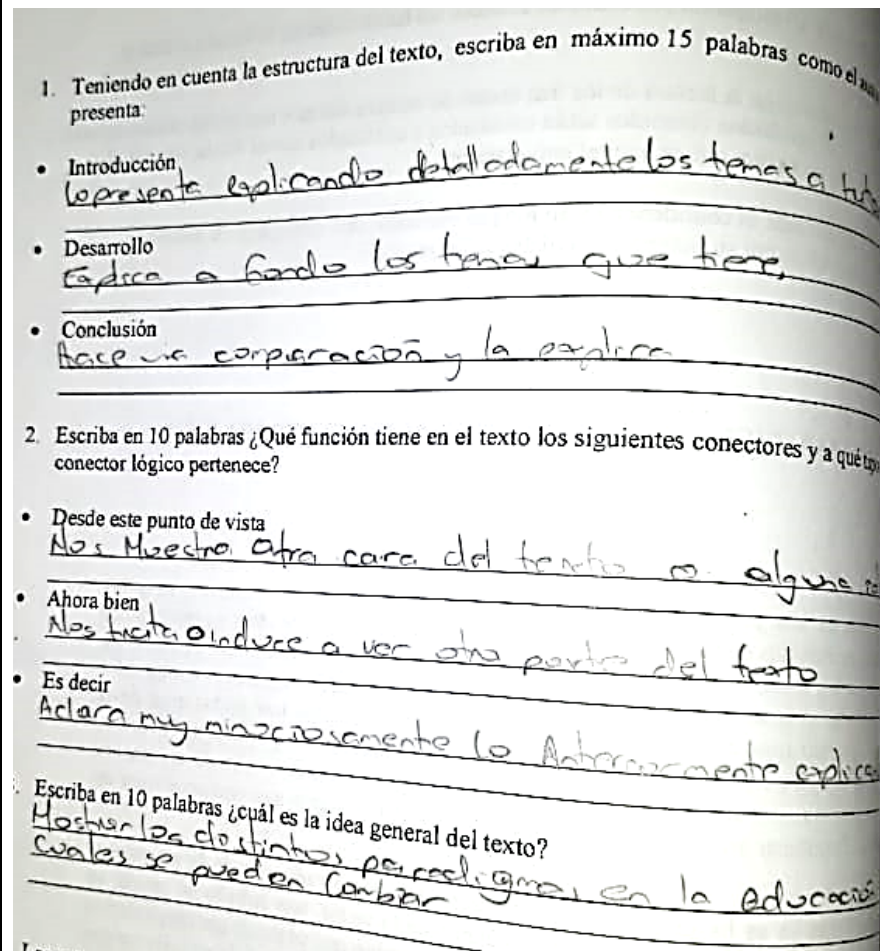 1. Teniendo en cuenta la estructura del texto, escriba en máximo 15 palabras como el
presenta:
• Introducción
lo presenta explicando detalladamente los temas a
• Desarrollo
Explica a fondo los temas que tiene,
• Conclusión
hace una comparación y la explica
2. Escriba en 10 palabras ¿Qué función tiene en el texto los siguientes conectores y a qué
conector lógico pertenece?
• Desde este punto de vista
Nos Muestra otra cara del texto o alguna
• Ahora bien
Nos incita o induce a ver otra parte del texto
• Es decir
Aclara muy minuciosamente lo Anteriormente
Escriba en 10 palabras ¿cuál es la idea general del texto?
Mostrar los distintos paradigmas en la educació
Cuales se pueden Cambiar